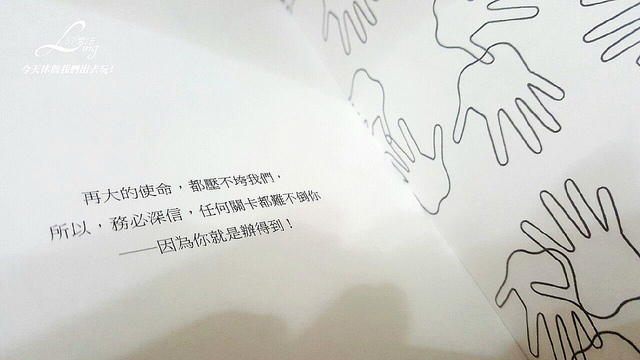 Ling
今天休假我們出去玩!
再大的使命，都壓不垮我們，
所以，務必深信，任何關卡都難不倒你
——因為你就是辦得到！